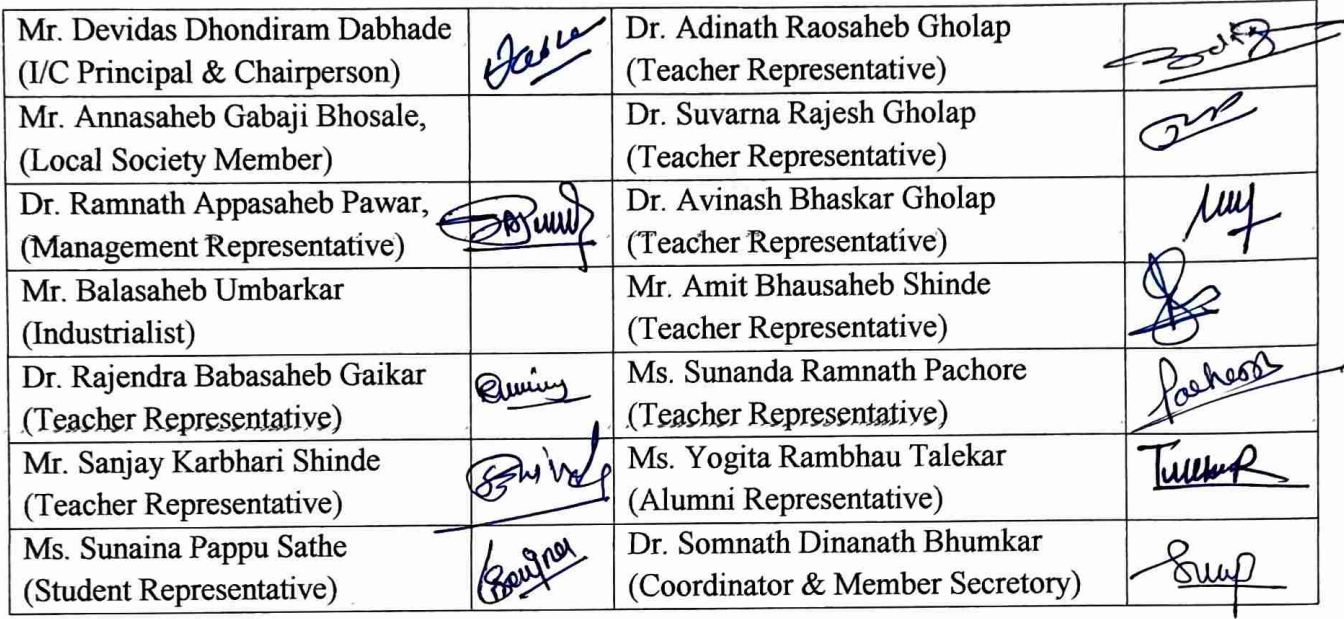 Mr. Devidas Dhondiram Dabhade
(I/C Principal & Chairperson)
Dr. Adinath Raosaheb Gholap
(Teacher Representative)
Mr. Annasaheb Gabaji Bhosale,
(Local Society Member)
Dr. Suvarna Rajesh Gholap
(Teacher Representative)
Dr. Ramnath Appasaheb Pawar,
(Management Representative)
Dr. Avinash Bhaskar Gholap
(Teacher Representative)
Mr. Balasaheb Umbarkar
(Industrialist)
Mr. Amit Bhausaheb Shinde
(Teacher Representative)
Dr. Rajendra Babasaheb Gaikar
(Teacher Representative)
Ms. Sunanda Ramnath Pachore
(Teacher Representative)
Mr. Sanjay Karbhari Shinde
(Teacher Representative)
Ms. Yogita Rambhau Talekar
(Alumni Representative)
Ms. Sunaina Pappu Sathe
(Student Representative)
Dr. Somnath Dinanath Bhumkar
(Coordinator & Member Secretory)